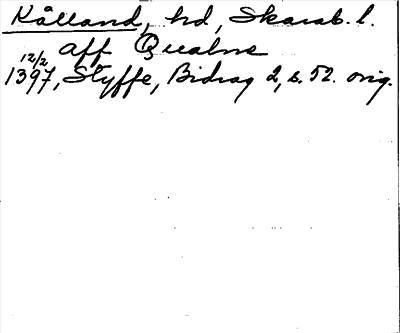 Kålland, hd, Skarab. l.
aff Qualne
12/2
1397, Styffe, Bidrag 2, s. 52. orig.